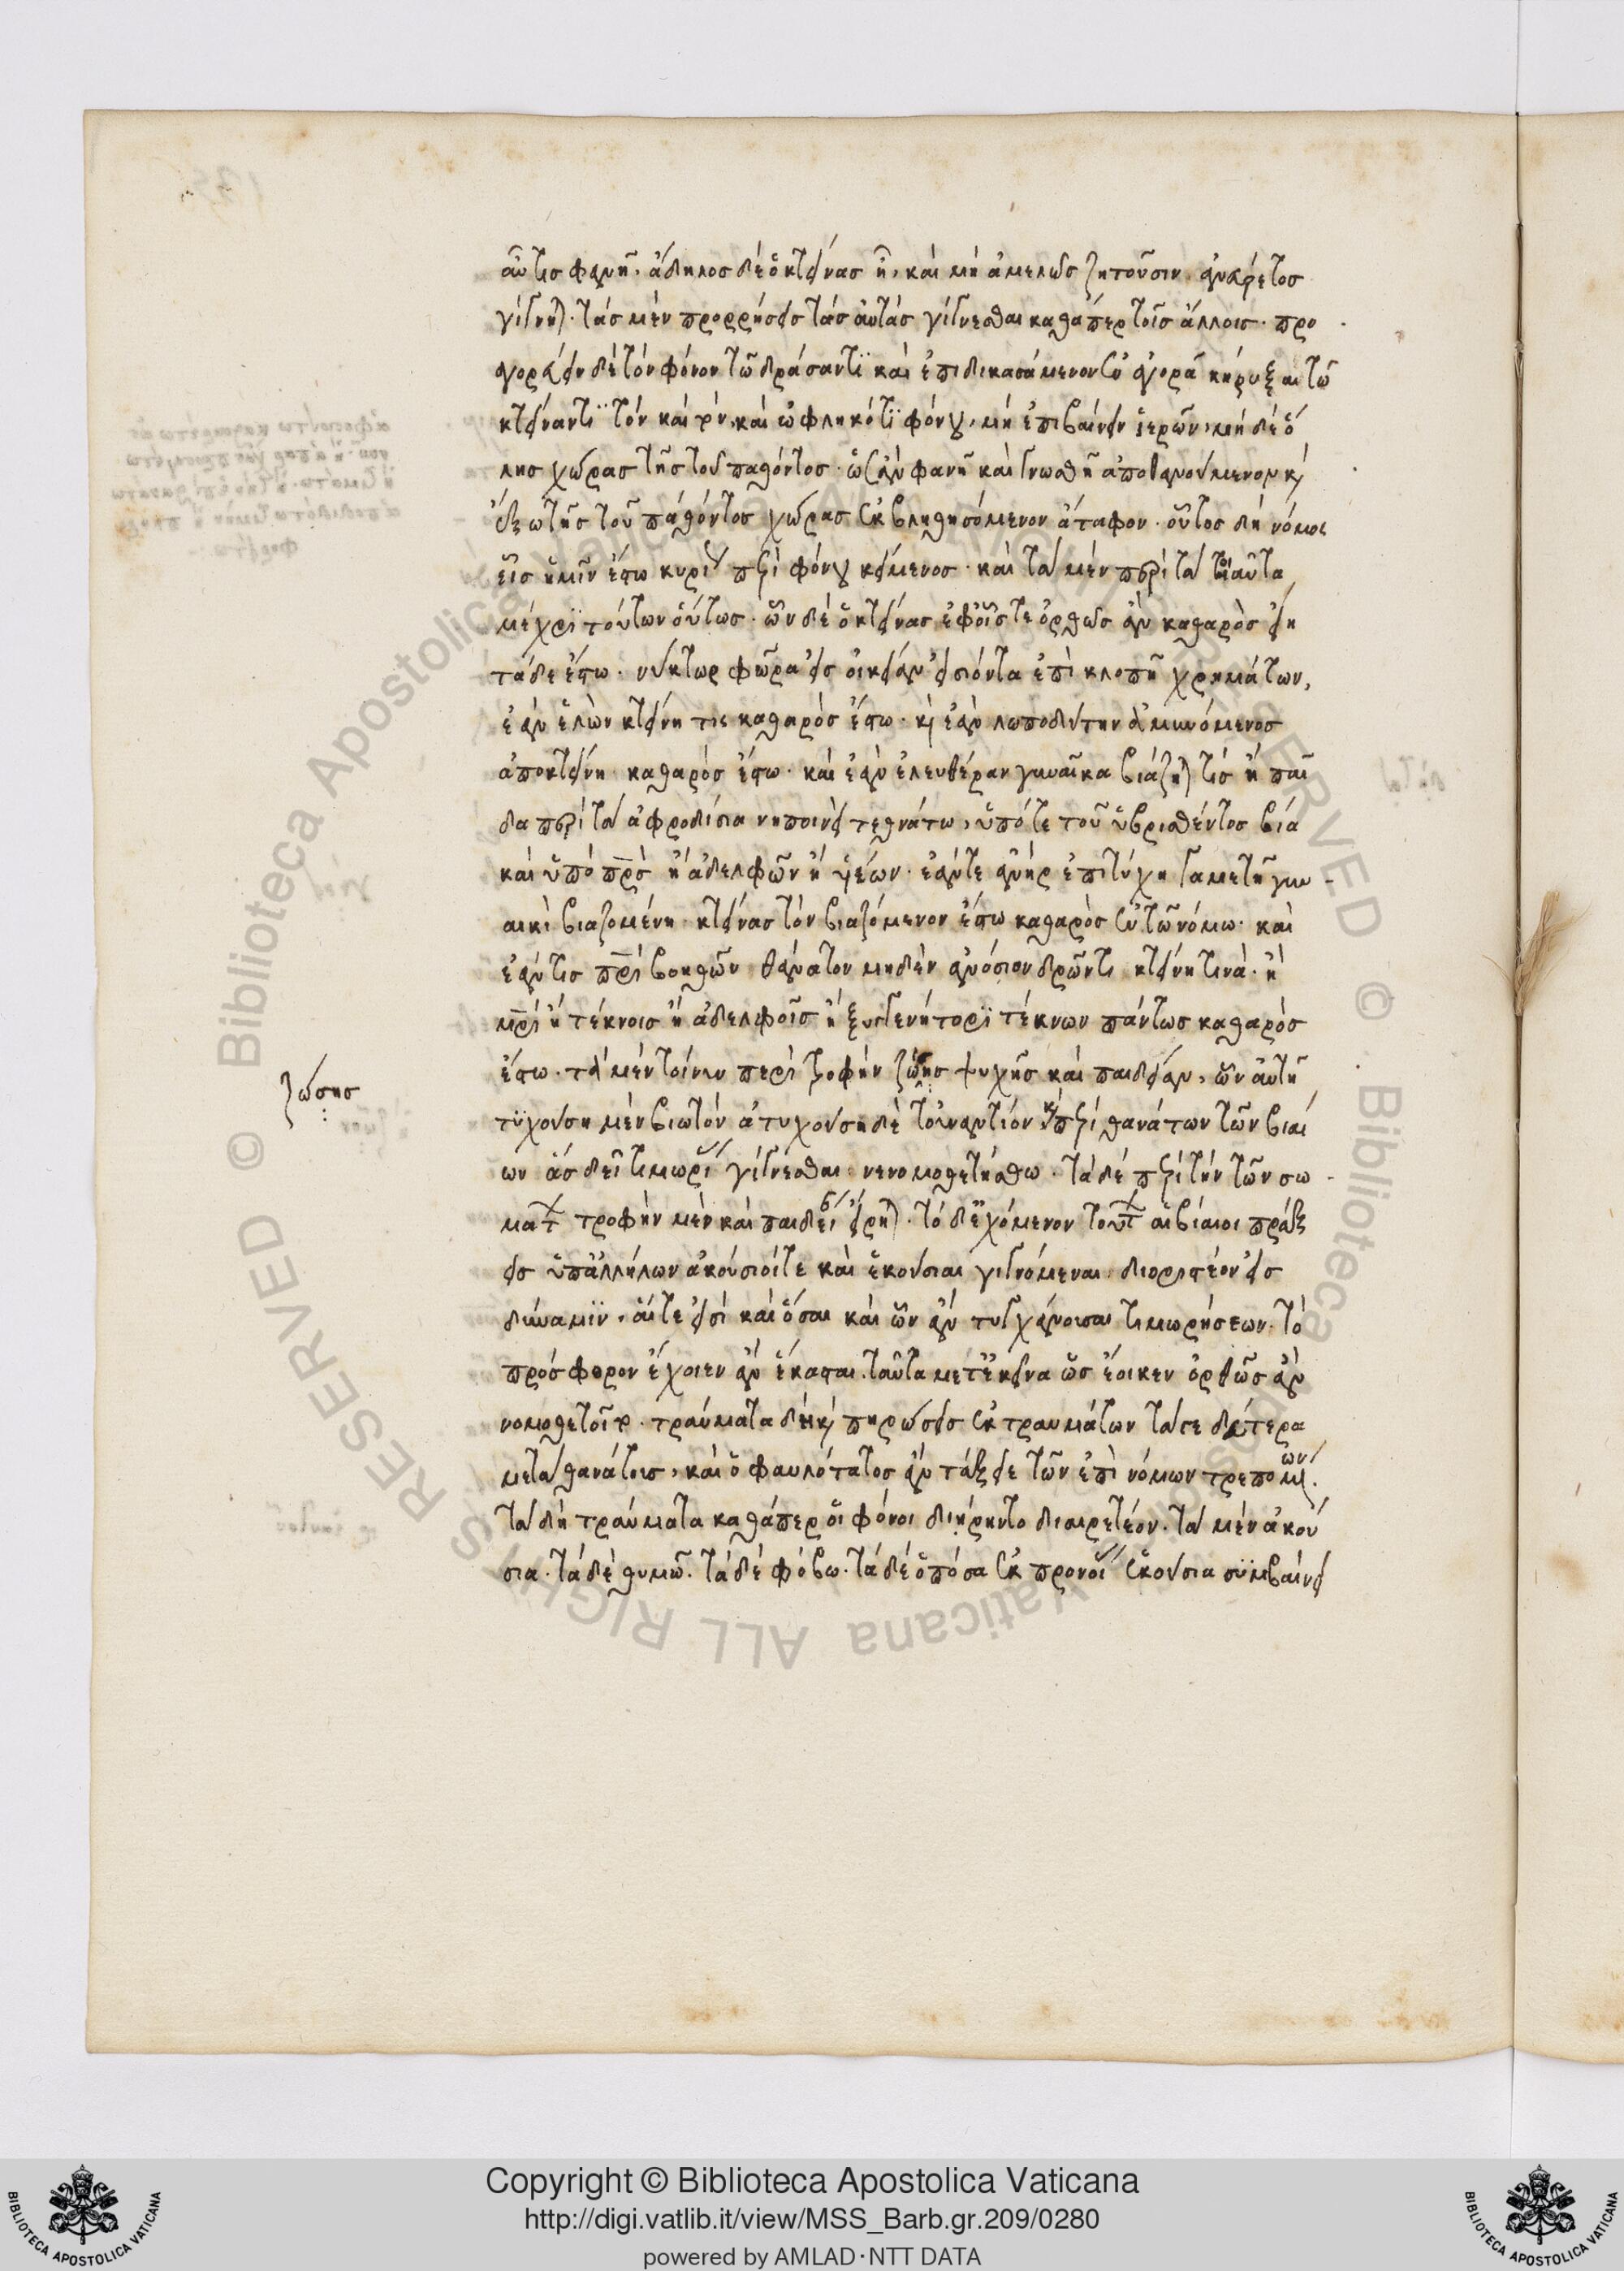 αὖ τις φανῆ, ἄδηλος δὲ ὁ κτείνας ἦ, καὶ μὴ ἀμελῶς ζητοῦσιν ἀνεύρετος
γίγνηται· τὰς μὲν προρρήσεις τὰς αὐτὰς γίγνεσθαι καθάπερ τοῖς ἄλλοις· προ
αγορεύειν δὲ τὸν φόνον τῶ δράσαντι καὶ ἐπιδικασάμενον ἐν ἀγορᾶ κηρύξαι τῶ
κτείναντι τὸν καὶ τὸν, καὶ ὠφληκότι φόνου, μὴ ἐπιβαίνειν ἱερῶν, μὴ δὲ ὅ
λης χώρας τῆς τοῦ παθόντος· ὡς ἂν φανῆ καὶ γνωσθῆ ἀποθανούμενον καὶ
ἔξω τῆς τοῦ παθόντος χώρας ἐκβληθησόμενον ἄταφον· οὗτος δὴ νόμος
εἷς ἡμῖν ἔστω κυρίως περὶ φόνου κείμενος· καὶ τὰ μὲν περὶ τὰ τοιαῦτα
μέχρι τούτων οὕτως· ὧν δὲ ὁ κτείνας ἐφ' οἷς τε ὀρθῶς ἂν καθαρὸς εἴη
τάδε ἔστω· νύκτωρ φῶρα εἰς οἰκίαν εἰσιόντα ἐπὶ κλοπῆ χρημάτων,
ἐὰν ἑλὼν κτείνη τις καθαρὸς ἔστω· καὶ ἐὰν λωποδύτην ἀμυνόμενος
ἀποκτείνη καθαρὸς ἔστω· καὶ ἐὰν ἐλευθέραν γυναῖκα βιάζηται τις ἢ παῖ
δα περὶ τὰ ἀφροδίσια νηποινεὶ τεθνάτω, ὑπό τε τοῦ ὑβρισθέντος βία
καὶ ὑπὸ πρς ἢ ἀδελφῶν ἢ ὑέων· ἐάν τε ἀνὴρ ἐπιτύχη γαμετῆ γυν
αικὶ βιαζομένη κτείνας τὸν βιαζόμενον ἔστω καθαρὸς ἐν τῶ νόμω· καὶ
ἐάν τις πρὶ βοηθῶν θάνατον μηδὲν ἀνόσιον δρῶντι κτείνη τινά· ἢ
μρὶ ἢ τέκνοις ἢ ἀδελφοῖς ἢ ξυγγενήτορι τέκνων πάντως καθαρὸς
ἔστω· τὰ μὲν τοίνυν περὶ τροφὴν ζώσης ψυχῆς καὶ παιδείαν, ὧν αὐτῆ
τυχούση μὲν βιωτὸν ἀτυχούση δὲ τοὐναντίον καὶ περὶ θανάτων τῶν βιαί
ων ἃς δεῖ τιμωρίας γίγνεσθαι νενομοθετήσθω· τὰ δὲ περὶ τὴν τῶν σω
μάτων τροφὴν μὲν καὶ παιδείαν εἴρηται· τὸ δὲ ἐχόμενον τούτων αἱ βίαιοι πράξ
εις ὑπ' ἀλλήλων ἀκούσιοί τε καὶ ἑκούσιαι γιγνόμεναι διοριστέον εἰς
δύναμιν, αἵ τε εἰσὶ καὶ ὅσαι καὶ ὧν ἂν τυγχάνουσαι τιμωρήσεων· τὸ
πρόσφορον ἔχοιεν ἂν ἕκασται· ταῦτα μετ' ἐκεῖνα ὡς ἔοικεν ὀρθῶς ἂν
νομοθετοῖτο· τραύματα δὴ καὶ πηρώσεις ἐκ τραυμάτων τά γε δεύτερα
μετὰ θανάτους, καὶ ὁ φαυλότατος ἂν τάξειε τῶν ἐπὶ νόμων τρεπομένων·
τὰ δὴ τραύματα καθάπερ οἱ φόνοι διῄρηντο διαιρετέον· τὰ μὲν ἀκού
σια· τὰ δὲ θυμῶ· τὰ δὲ φόβω· τὰ δὲ ὁπόσα ἐκ προνοίας ἑκούσια συμβαίνει
ζώσης
Copyright © Biblioteca Apostolica Vaticana
http://digi.vatlib.it/view/MSS_Barb.gr.209/0280
powered by AMLAD·NTT DATA
BIBLIOTECA APOSTOLICA VATICANA
BIBLIOTECA APOSTOLICA VATICANA
© Biblioteca Apostolica Vaticana ALL RIGHTS RESERVED